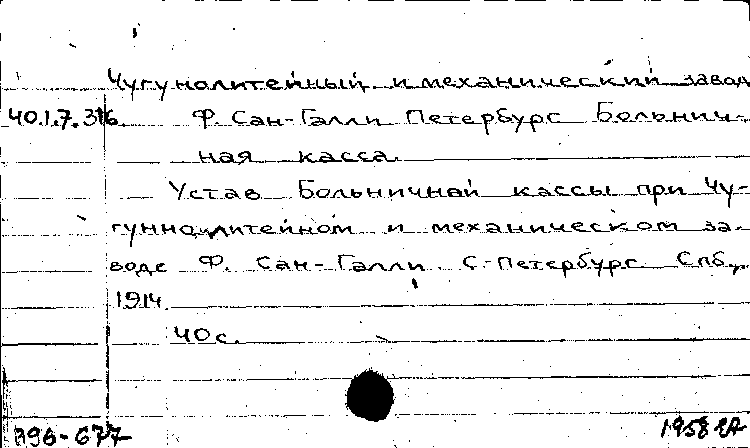 Чугунолитейный и механический завод
40.1.7.316. Ф. Сан-Галли Петербург Больнич-
ная касса.
Устав Больничной кассы при Чу-
гуннолитейном и механическом за-
воде Ф. Сан-Галли С.-Петербург. Спб.,
1914.
40 с.
П96-677 1958